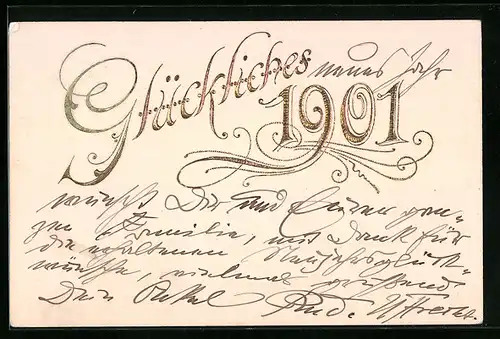 Glückliches neues Jahr
1901
wünscht Dir und Eurer gan=
zen Familie, mit Dank für
die erhaltenen Neujahrsglück=
wünsche, vielmals grüssend
Dein Onkel Rud.